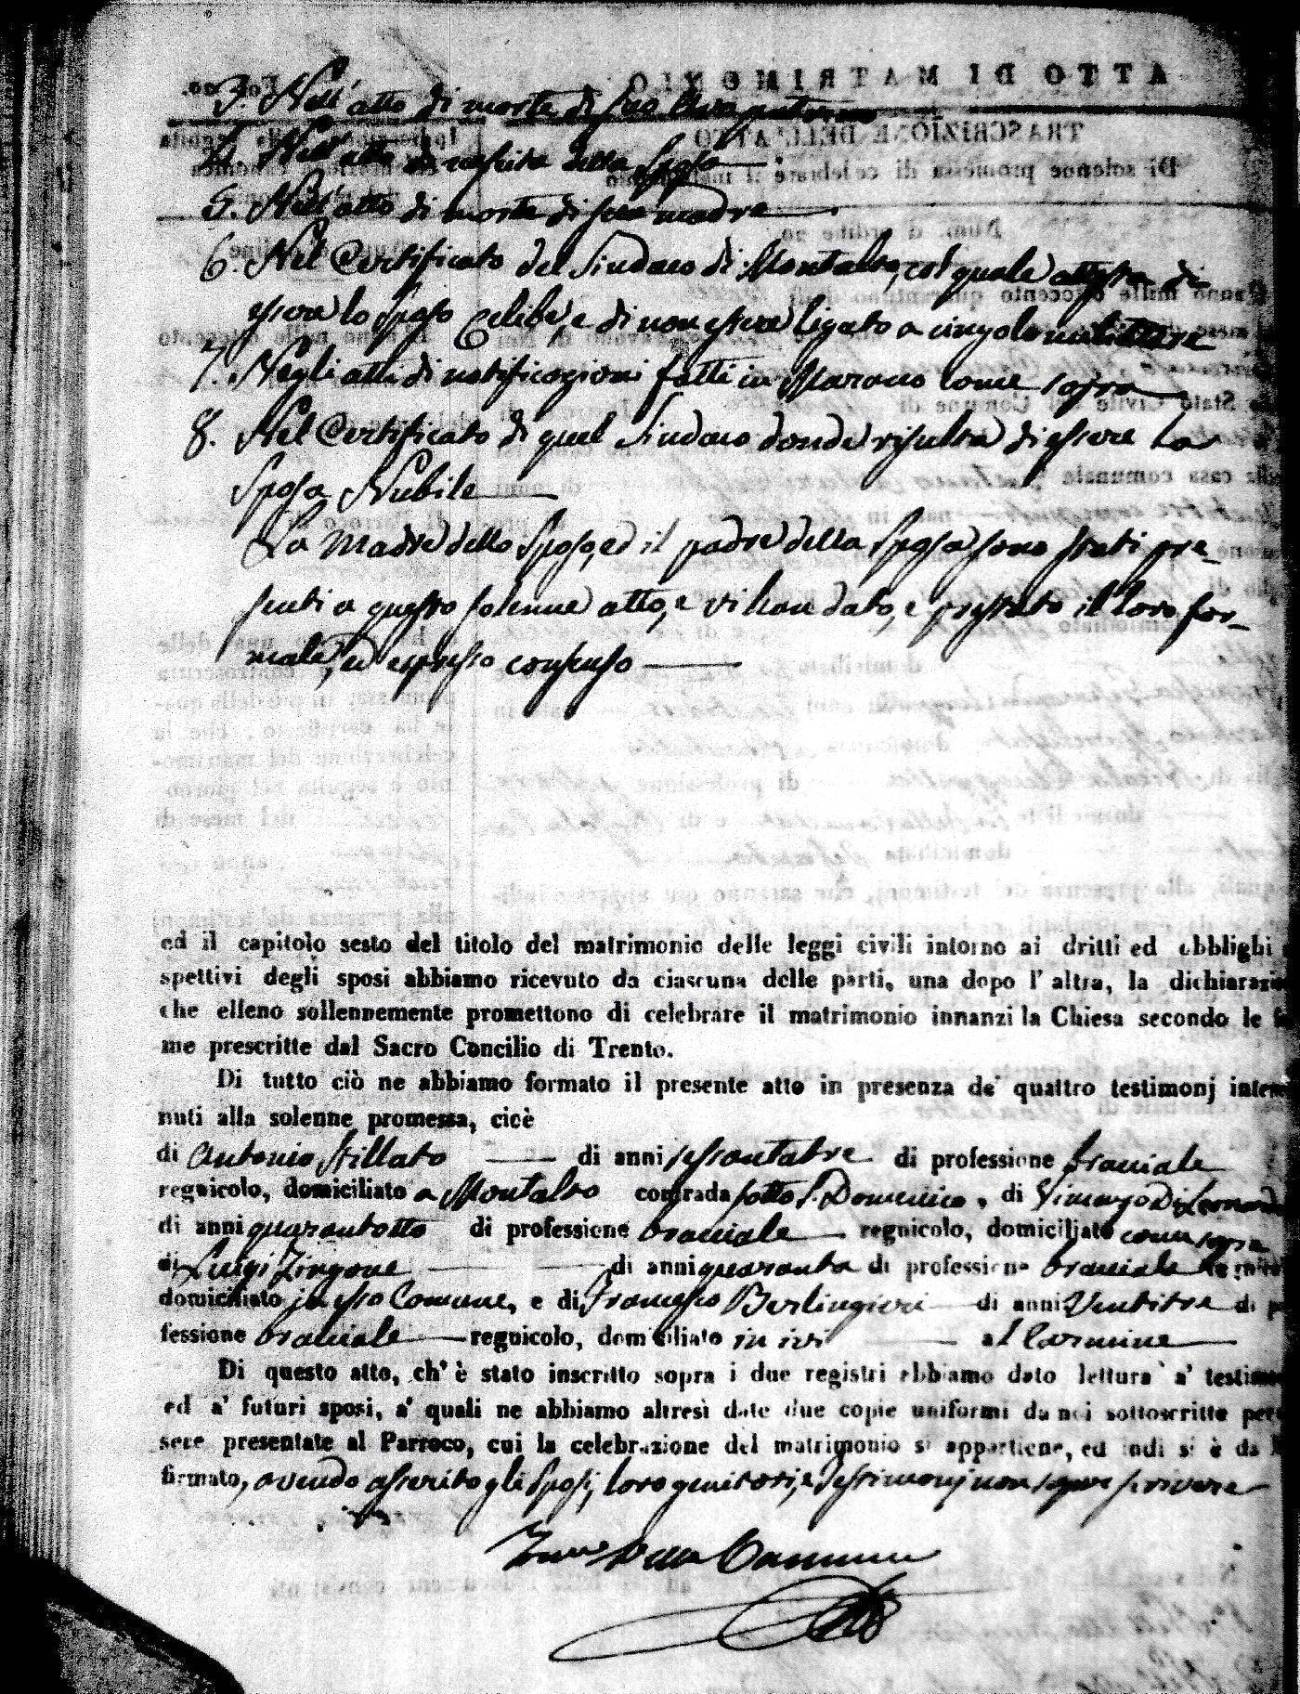 3. Nell'atto di morte di suo Avo paterno
4. Nell'atto di nascita della Sposa
5. Nell'atto di morte di sua madre
6. Nel Certificato del Sindaco di Montalto, col quale attesta di
essere lo Sposo Celibe, e di non essere ligato a cingolo militare
7. Negli atti di notificazioni fatti in Marano come sopra
8. Nel Certificato di quel Sindaco donde risulta di essere la
Sposa Nubile
La Madre dello Sposo, ed il padre della Sposa sono stati pre-
senti a questo solenne atto, e vi han dato, e prestato il loro for-
male, ed espresso consenso
ed il capitolo sesto del titolo del matrimonio delle leggi civili intorno ai dritti ed obblighi
spettivi degli sposi abbiamo ricevuto da ciascuna delle parti, una dopo l' altra, la dichiarazio
che elleno sollennemente promettono di celebrare il matrimonio innanzi la Chiesa secondo le
me prescritte dal Sacro Concilio di Trento.
Di tutto ciò ne abbiamo formato il presente atto in presenza de' quattro testimonj interve
nuti alla solenne promessa, cioè
di Antonio Stillato di anni sessantatre di professione bracciale
regnicolo, domiciliato a Montalto contrada sotto S. Domenico, di Vinanzo Di Leonardo
di anni quarantotto di professione bracciale regnicolo, domiciliato come sopra
di Luigi Zingone di anni quaranta di professione bracciale regnicolo
domiciliato in esso Comune, e di Francesco Berlingieri di anni Ventitre di p
fessione bracciale regnicolo, domiciliato in ivi al Carmine
Di questo atto, ch' è stato inscritto sopra i due registri abbiamo dato lettura a' testimo
ed a' futuri sposi, a' quali ne abbiamo altresì date due copie uniformi da noi sottoscritte per
sere presentate al Parroco, cui la celebrazione del matrimonio si appartiene, ed indi si è da
firmato, avendo asserito gli Sposi, loro genitori, e testimonj non sapere scrivere